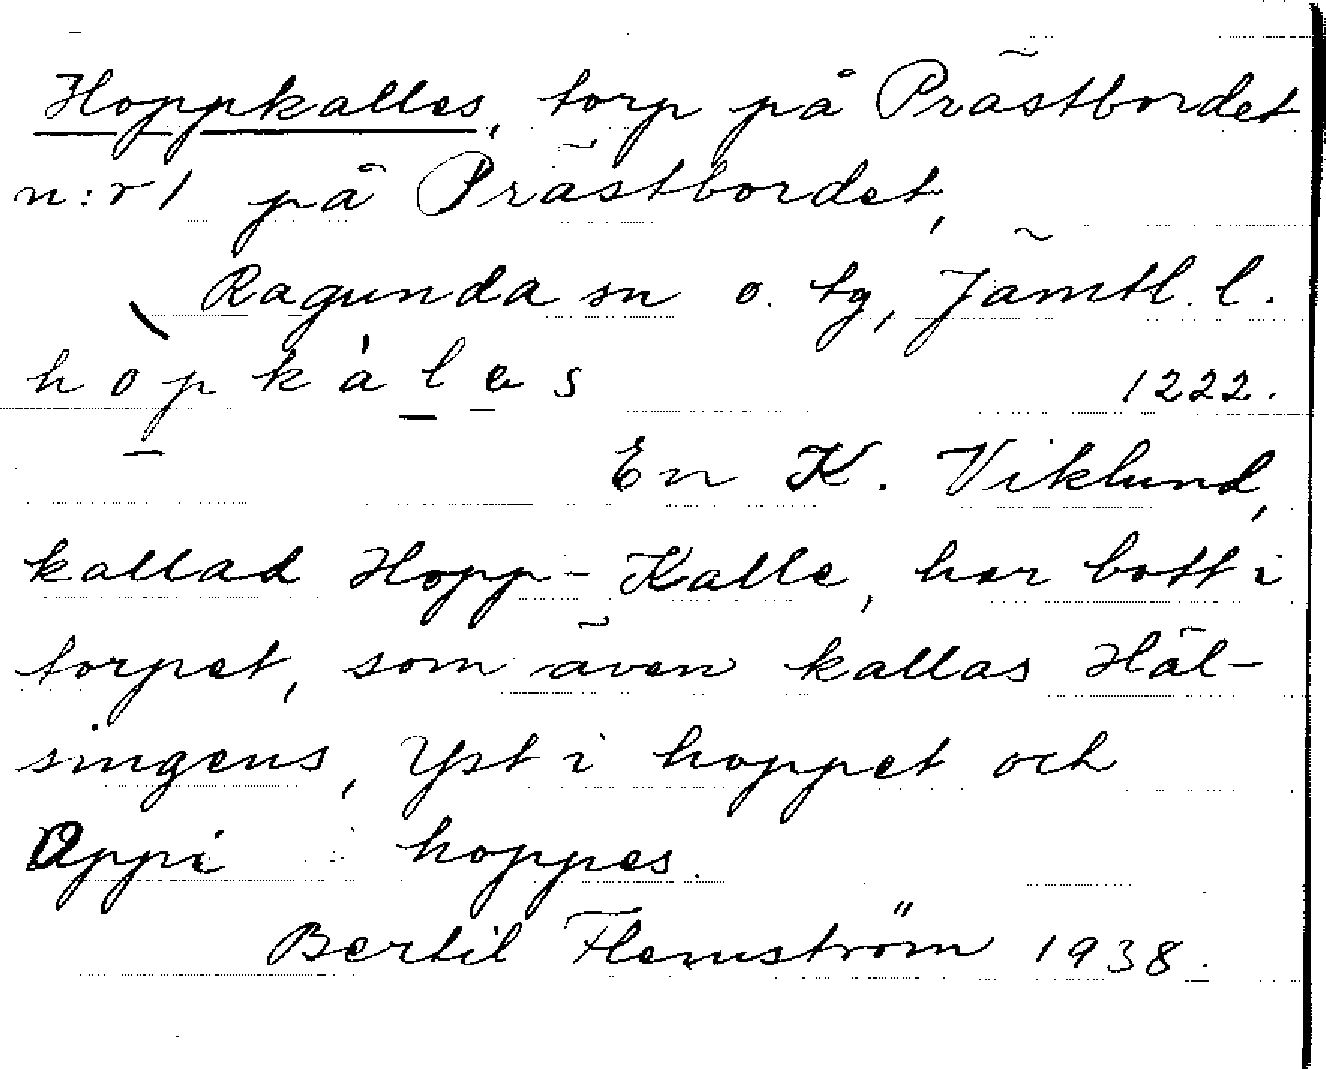 Hoppkalles, torp på Prästbordet
n:r 1 på Prästbordet,
Ragunda sn o. tg, Jämtl. l.
hòpkálas 1222.
En K. Viklund,
kallad Hopp-Kalle, har bott i
torpet, som även kallas Häl-
singens, Yst i hoppet och
Oppi hoppes.
Bertil Flemström 1938.